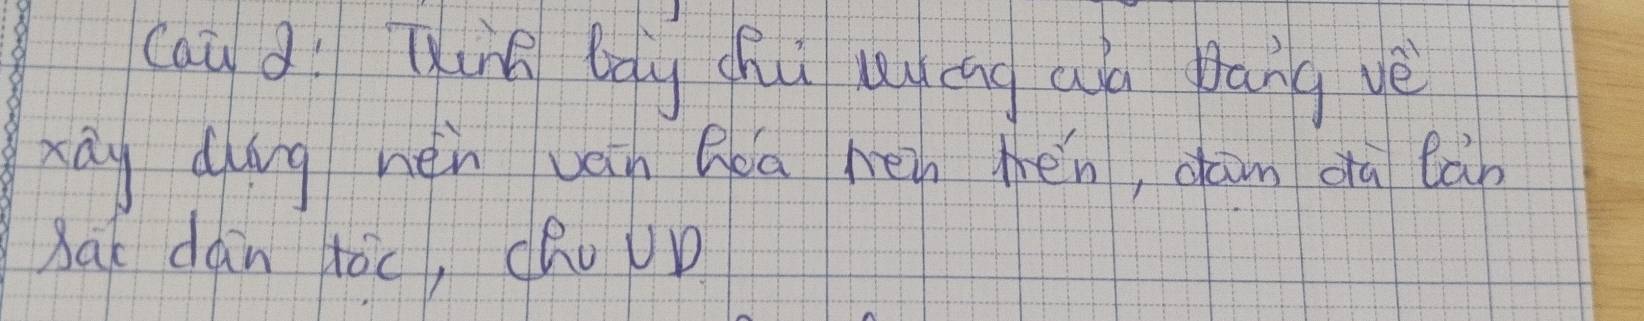 Câu 2: Trình bày chủ trương của Đảng về
xây dựng nền văn hóa tiên tiến, đậm đà bản
sắc dân tộc, cho VD.